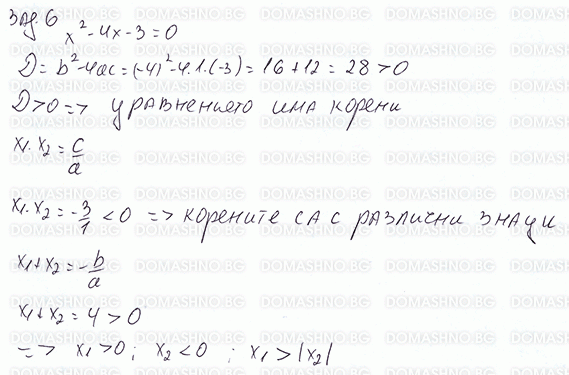 Зад. 6
x² - 4x - 3 = 0
D = b² - 4ac = (-4)² - 4.1.(-3) = 16 + 12 = 28 > 0
D > 0 => уравнението има корени
x₁. x₂ = c/a
x₁. x₂ = -3/1 < 0 => корените са с различни знаци
x₁ + x₂ = -b/a
x₁ + x₂ = 4 > 0
=> x₁ > 0 ; x₂ < 0 ; x₁ > |x₂|
DOMASHNO.BG